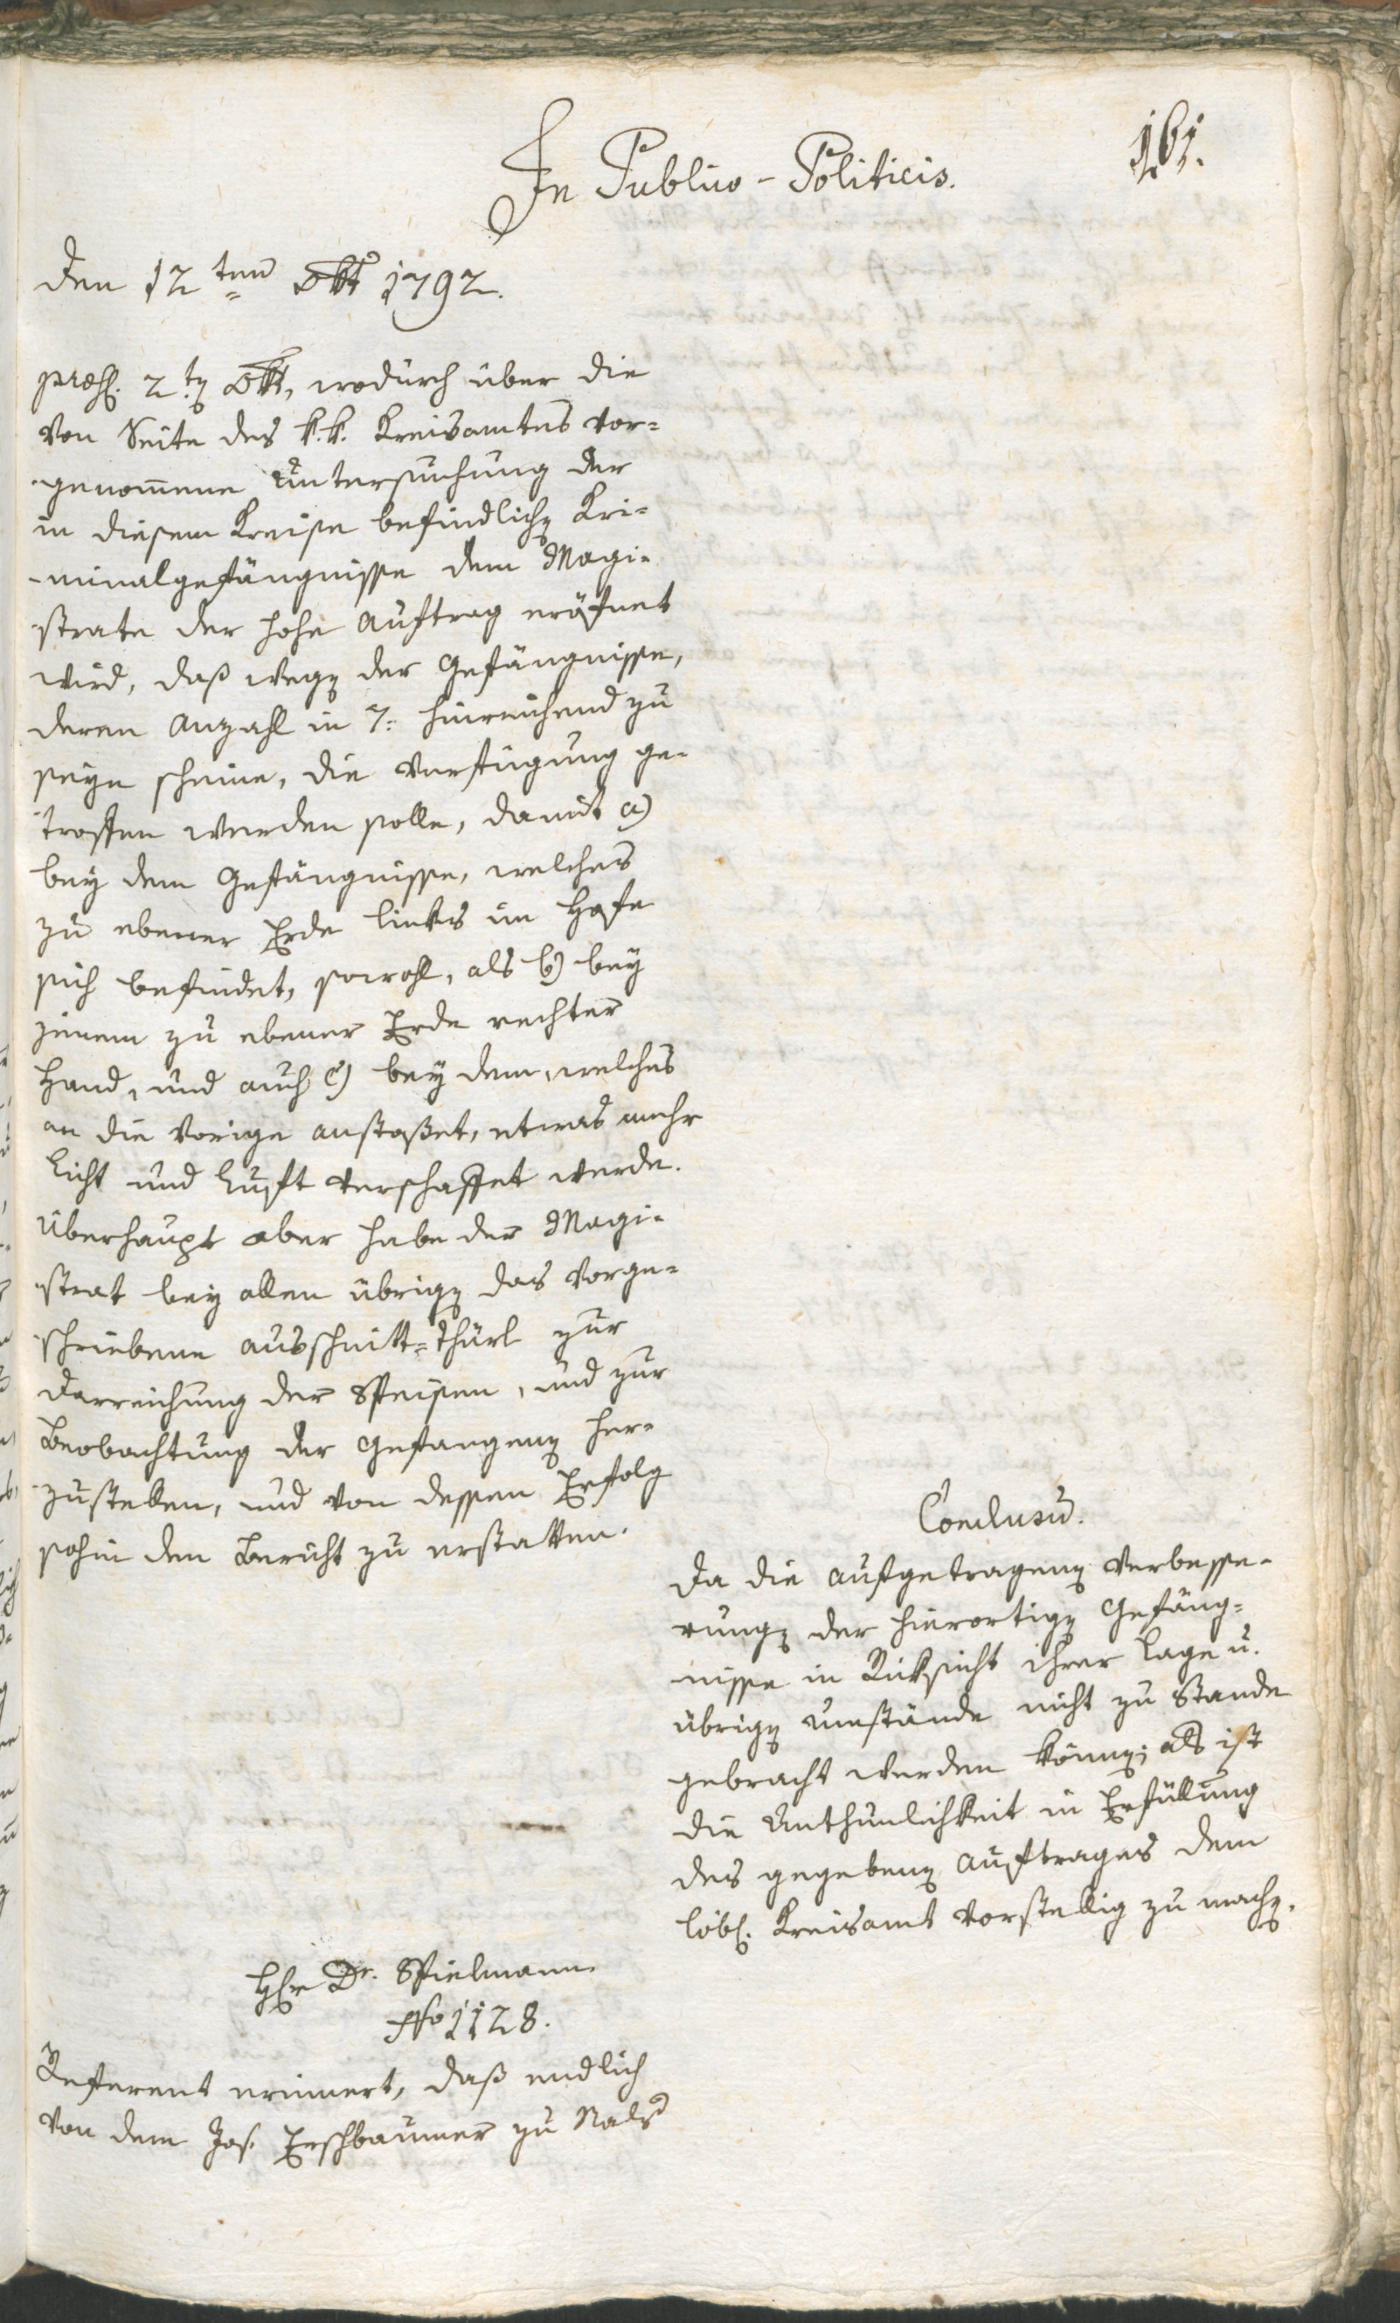 161.
In Publico-Politicis.
den 12ten Obr 1792.
præs. 2ten Obr, wodurch über die
von Seite des k. k. Kreisamtes vor=
genommene Untersuchung der
in diesem Kreise befindlichen Kri=
minalgefängnisse dem Magi=
strate der hohe Auftrag eröfnet
wird, daß wegen der Gefängnisse,
deren Anzahl in 7. hinreichend zu
seyn scheine, die Verfügung ge=
troffen werden solle, damit a)
bey dem Gefängnisse, welches
zu ebener Erde links im Hofe
sich befindet, sowohl, als b) bey
jenem zu ebener Erde rechter
Hand, und auch c) bey dem, welches
an die vorige anstoßet, etwas mehr
Licht und Luft verschaffet werde.
Überhaupt aber habe der Magi=
strat bey allen übrigen das vorge=
schriebene Ausschnitt=Thürl zur
Darreichung der Speisen, und zur
Beobachtung der Gefangenen her=
zustellen, und von dessen Erfolg
sohin den Bericht zu erstatten.
Conclusum.
Da die aufgetragenen Verbesse=
rungen der hierortigen Gefäng=
nisse in Rücksicht ihrer Lage u.
übrigen Umstände nicht zu Stande
gebracht werden können; als ist
die Unthunlichkeit in Erfüllung
des gegebenen Auftrages dem
löbl. Kreisamt vorstellig zu machen.
Herr Dr. Spielmann
No 1128.
Referent erinnert, daß endlich
von dem Jos. Erschbaumer zu Nals